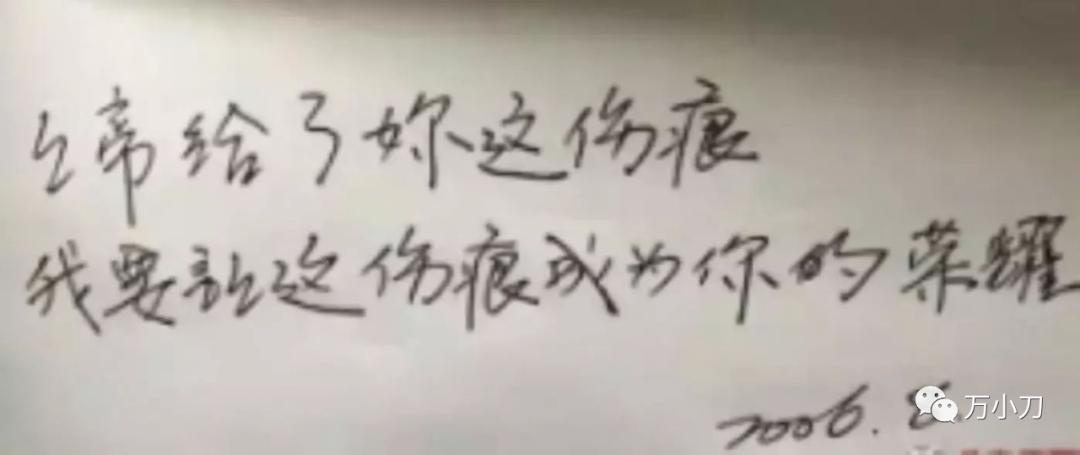 上帝给了妳这伤痕
我要让这伤痕成为你的荣耀
2006.8
万小刀